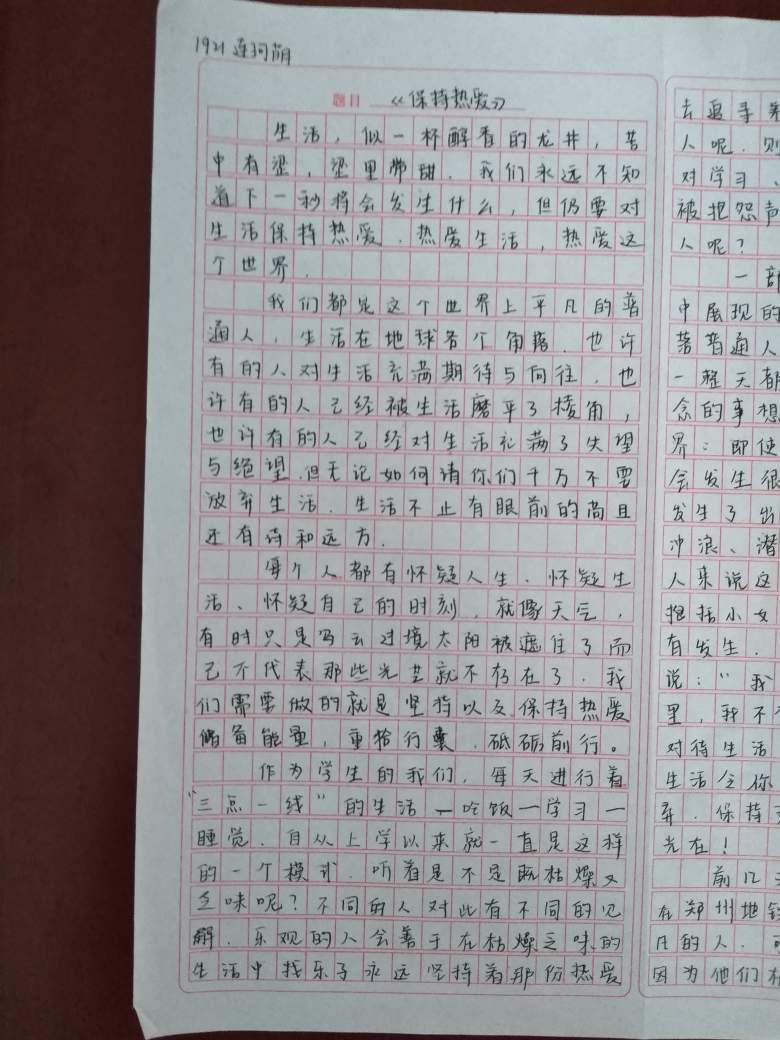 1921 连珂萌
题目 《保持热爱》
生活，似一杯醇香的龙井，苦
中有涩，涩里带甜．我们永远不知
道下一秒将会发生什么，但仍要对
生活保持热爱．热爱生活，热爱这
个世界．
我们都是这个世界上平凡的普
通人．生活在地球各个角落．也许
有的人对生活充满期待与向往．也
许有的人已经被生活磨平了棱角，
也许有的人已经对生活充满了失望
与绝望．但无论如何请你们千万不要
放弃生活．生活不止有眼前的苟且
还有诗和远方．
每个人都有怀疑人生、怀疑生
活、怀疑自己的时刻．就像天气，
有时只是乌云过境太阳被遮住了而
己不代表那些光芒就不存在了．我
们需要做的就是坚持以及保持热爱
储备能量，重拾行囊．砥砺前行。
作为学生的我们，每天进行着
"三点一线"的生活一吃饭一学习一
睡觉．自从上学以来就一直是这样
的一个模式．听着是不是既枯燥又
乏味呢？不同的人对此有不同的见
解．乐观的人会善于在枯燥乏味的
生活中找乐子永远坚持着那份热爱
去追寻
人呢．则
对学习、
被抱怨声
人呢？
一部
中展现的
著普通人
一程天都
念的事想
界：即使
会发生很
发生了出
冲浪、潜
人来说这
抱括小女
有发生．
说："我
里，我不
对待生活
生活会你
弃．保持
光在！
前几
在郑州地铁
凡的人．
因为他们